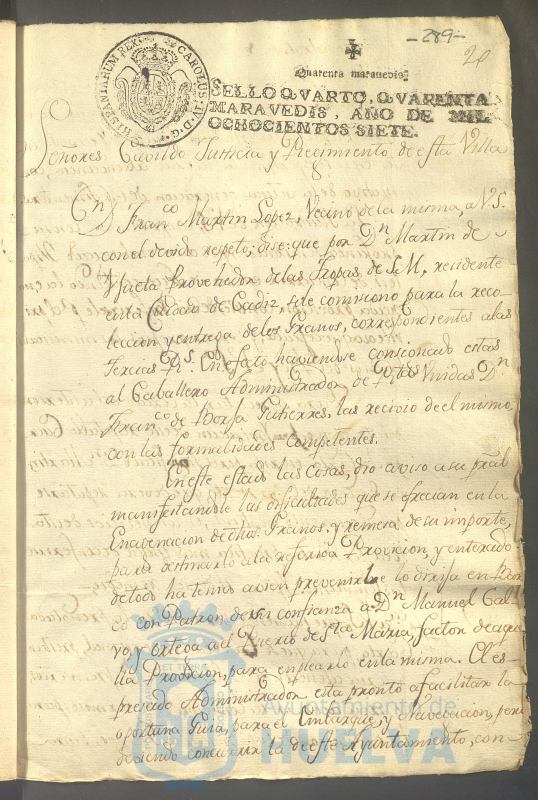 -289-
20
HISPANIARUM REX CAROLUS IV D.G.
Quarenta maravedis.
SELLO QVARTO, QVARENTA
MARAVEDIS, AÑO DE MIL
OCHOCIENTOS SIETE.
Señores Cavildo Justicia y Regimiento de esta Villa
Dn Franco Martin Lopez, Vecino de la misma, a V.S.
con el devido respeto, dise: que por Dn Martin de
Provehedor de las Tropas de S.M, recidente
en la Ciudad de Cadiz, se le comisiono para la reco-
leccion y entrega de los Granos, correspondientes a las
Tercias Rs. En efecto haviendose consignado estas
al Caballero Administrador de Rentas Unidas Dn
Franco de Borja Gutierres, las recivio de el mismo
con las formalidades competentes.
En este estado las Cosas, dio aviso a su pral
manifestandole las dificultades que se ofrecian en la
Enagenacion de dhos. Granos, y remesa de su importe,
para destinarlo a la referida Provicion, y enterado
de todo ha tenido a vien prevenirle lo dirija en Bar
co con Patron de su confianza a Dn Manuel Cal
vo, y Ortega al Puerto de Sta Maria, factor de aque
lla Provicion, para emplearlo en la misma. El es-
presado Administrador esta pronto a facilitar la
oportuna Guia, para el Embarque, y Navegacion, pero
deviendo concurrir la de este Ayuntamiento, con
Ayuntamiento de
HUELVA